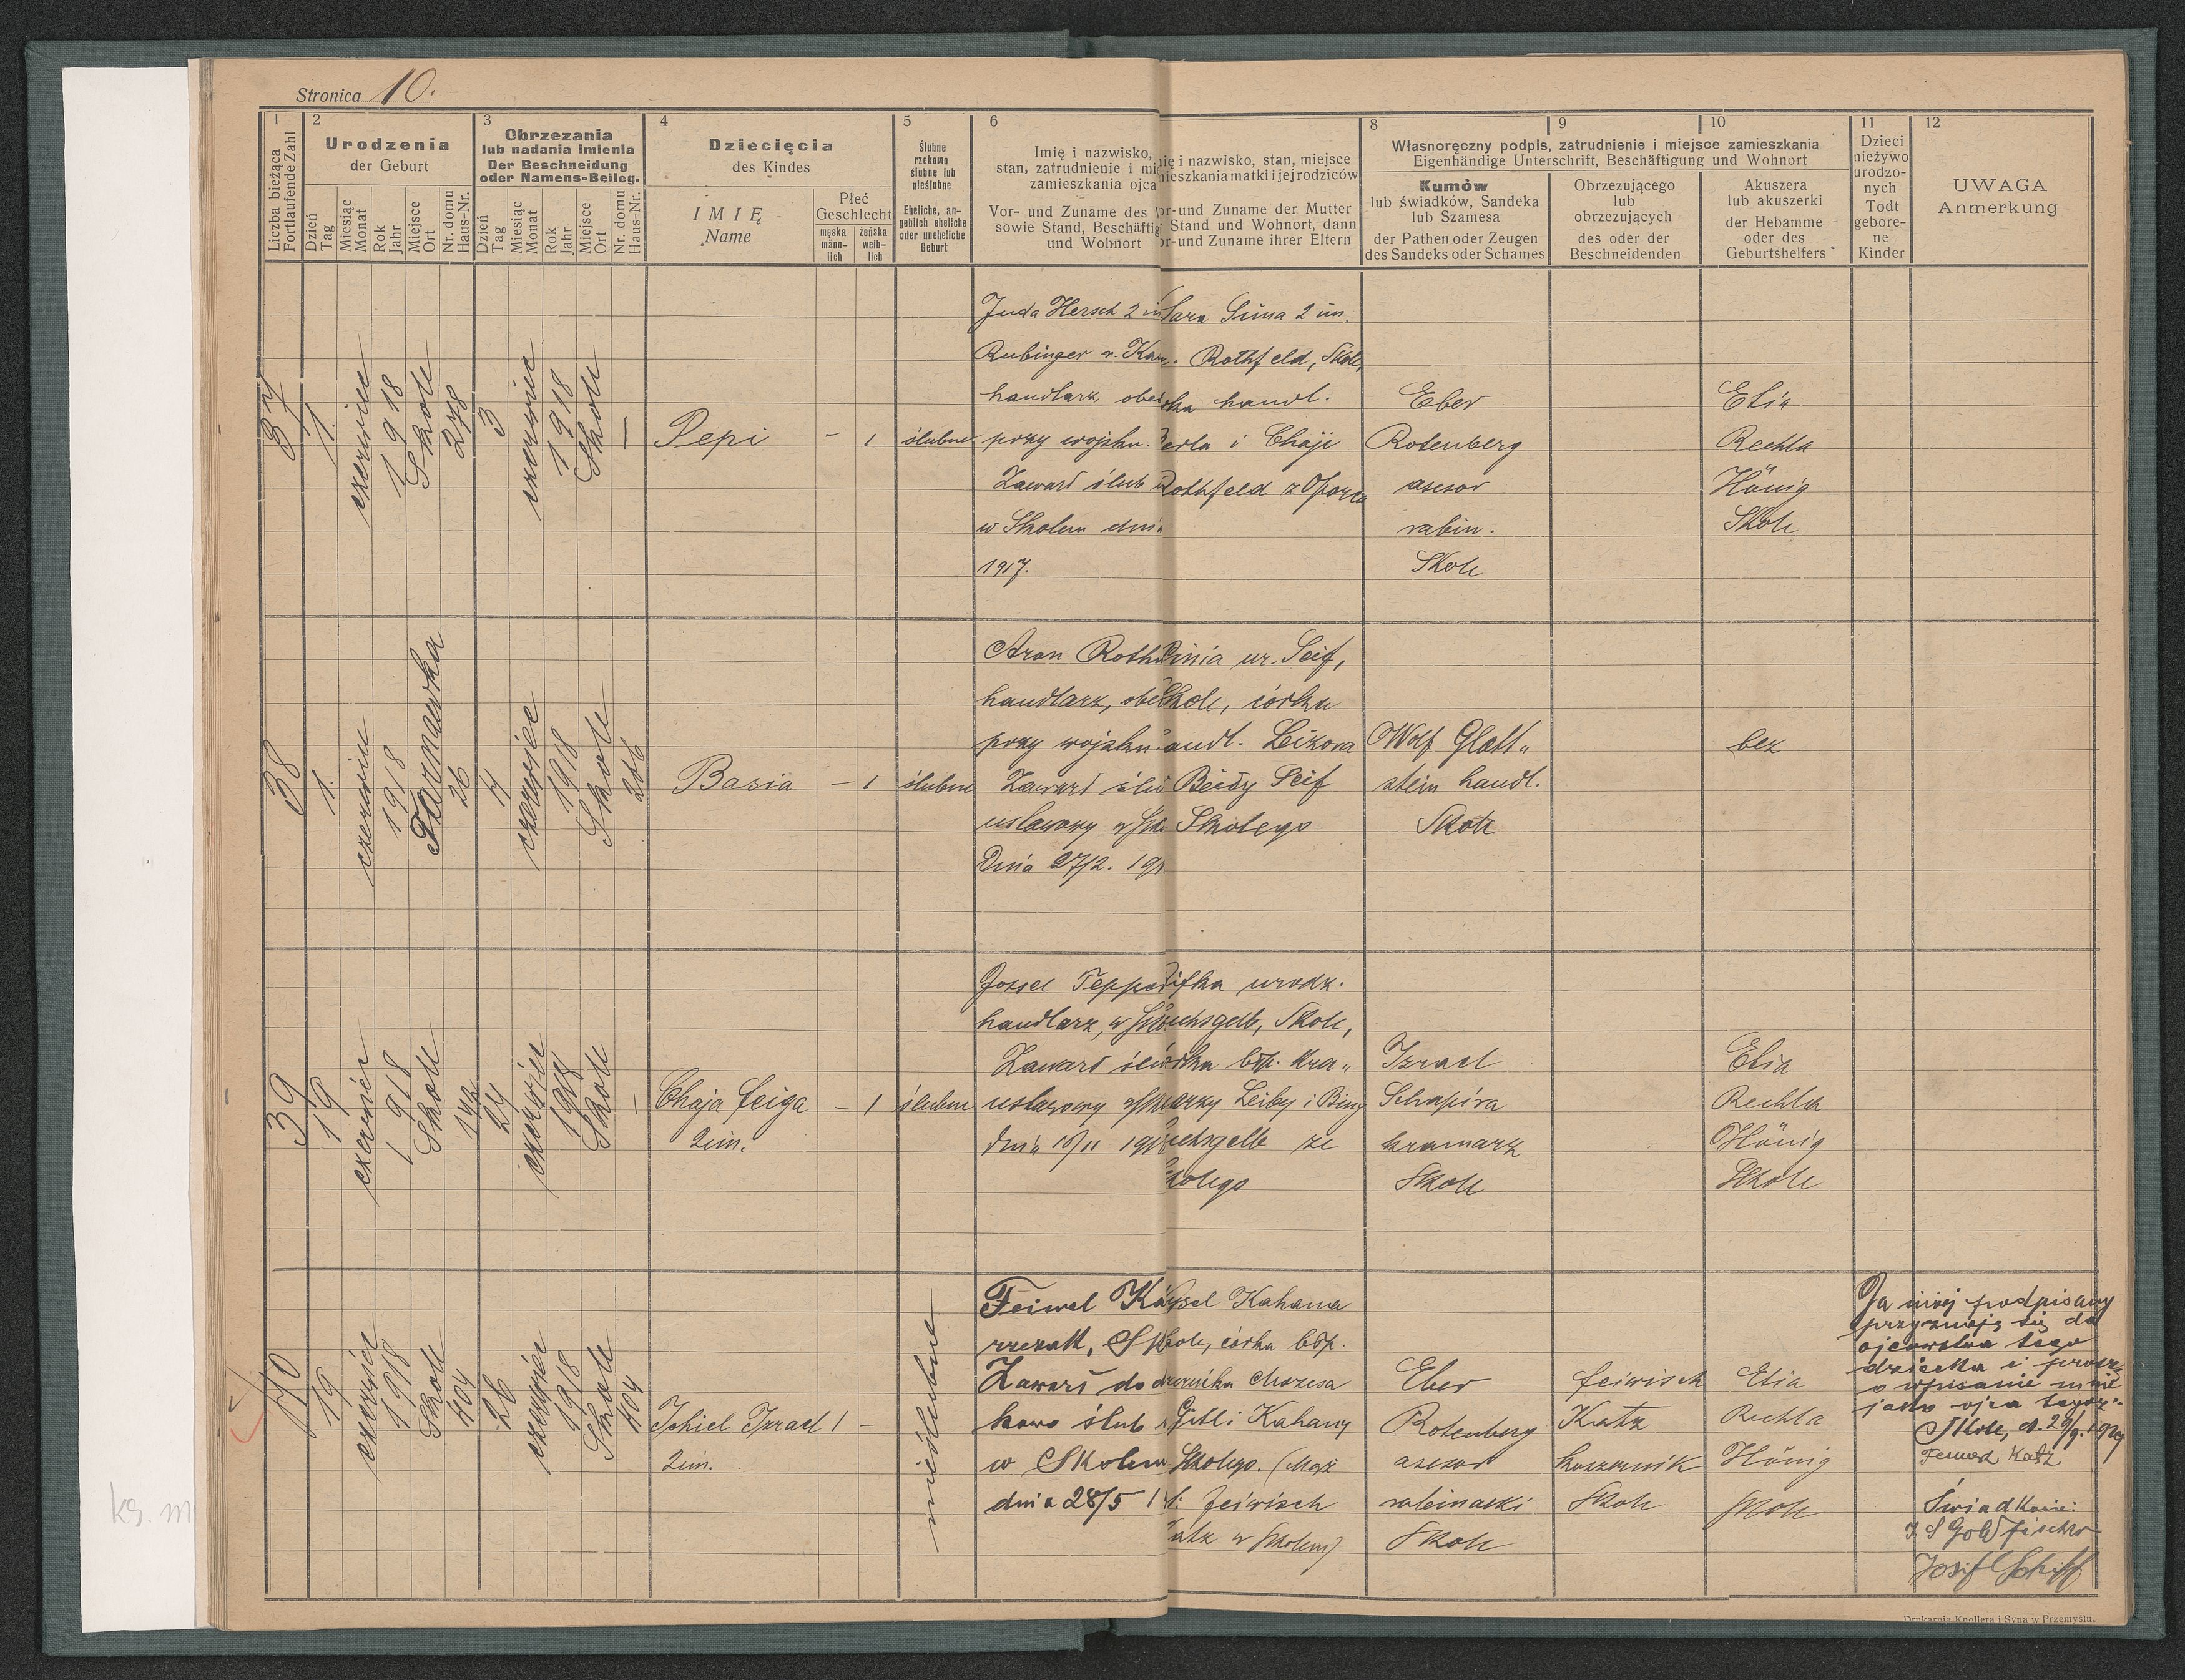 Stronica 10.
1 2 3 4 5 6 8 9 10 11 12
Liczba bieżąca
Fortlaufende Zahl
Urodzenia
der Geburt
Dzień
Tag
Miesiąc
Monat
Rok
Jahr
Miejsce
Ort
Nr. domu
Haus-Nr.
Obrzezania
lub nadania imienia
Der Beschneidung
oder Namens-Beileg.
Dzień
Tag
Miesiąc
Monat
Rok
Jahr
Miejsce
Ort
Nr. domu
Haus-Nr.
Dziecięcia
des Kindes
IMIĘ
Name
Płeć
Geschlecht
męska
männ-
lich
żeńska
weib-
lich
Ślubne
rzekomo
ślubne lub
nieślubne
Eheliche, an-
geblich eheliche
oder uneheliche
Geburt
Imię i nazwisko,
stan, zatrudnienie i
zamieszkania ojca
Vor- und Zuname des
sowie Stand, Beschäftig
und Wohnort
i nazwisko, stan, miejsce
mieszkania matki i jej rodziców
or-und Zuname der Mutter
Stand und Wohnort, dann
or-und Zuname ihrer Eltern
Własnoręczny podpis, zatrudnienie i miejsce zamieszkania
Eigenhändige Unterschrift, Beschäftigung und Wohnort
Kumów
lub świadków, Sandeka
lub Szamesa
der Pathen oder Zeugen
des Sandeks oder Schames
Obrzezującego
lub
obrzezujących
des oder der
Beschneidenden
Akuszera
lub akuszerki
der Hebamme
oder des
Geburtshelfers
Dzieci
nieżywo
urodzo-
nych
Todt
gebore-
ne
Kinder
UWAGA
Anmerkung
37
1.
czerwiec
1918
Skole
278
3
czerwiec
1918
Skole
—
Pepi
- 1
ślubne
Juda Hersch 2
Rubinger
handlarz,
przy wojsku.
Zawarł ślub
w Skolem dnia
1917.
Sara Sima 2 im.
Rothfeld, Skole,
handl.
i Chaji
Rothfeld
Eber
Rotenberg
asesor
rabin.
Skole
Etia
Rechla
Hönig
Skole
38
1.
czerwiec
1918
Tarnawka
26
4
czerwiec
1918
Skole
286
Basia
- 1
ślubne
Aron
handlarz,
przy wojsku
Zawarł
ustawowy
Dnia 27/2.
ur. Seif,
Skole, córka
Leizora
Beidy Seif
Skolego
Wolf Glatt„
stein handl.
Skole
bez
39
19
czerwiec
1918
Skole
24
czerwiec
1918
Skole
Chaja Feiga
2 im.
- 1
ślubne
Jossel
handlarz, w
Zawarł
ustawowy
dnia 10/11
urodz.
Skole,
błp. kra„
Leiby i Biny
ze
Skolego
Izrael
Schapira
kramarz
Skole
Etia
Rechla
Hönig
Skole
40
19
czerwiec
1918
Skole
404
26
czerwiec
1918
Skole
404
Ichiel Izrael
2 im.
1 -
nieślubne
Feiwel
rzezak,
Zawarł do
ślub
w Skolem
dnia 28/5
Kahana
córka błp.
Mozesa
Gitli Kahany
Skolego. (Mąż
Feiwisch
w Skolem)
Eber
Rotenberg
asesor
rabinacki
Skole
Feiwisch
Katz
Skole
Etia
Rechla
Hönig
Skole
Ja niżej podpisany
przyznaję się do
ojcowstwa tego
dziecka i proszę
o wpisanie mnie
jako ojca tegoż.
Skole,
Katz
Świadkowie:
Josif Schiff
Drukarnia Knollera i Syna w Przemyślu.